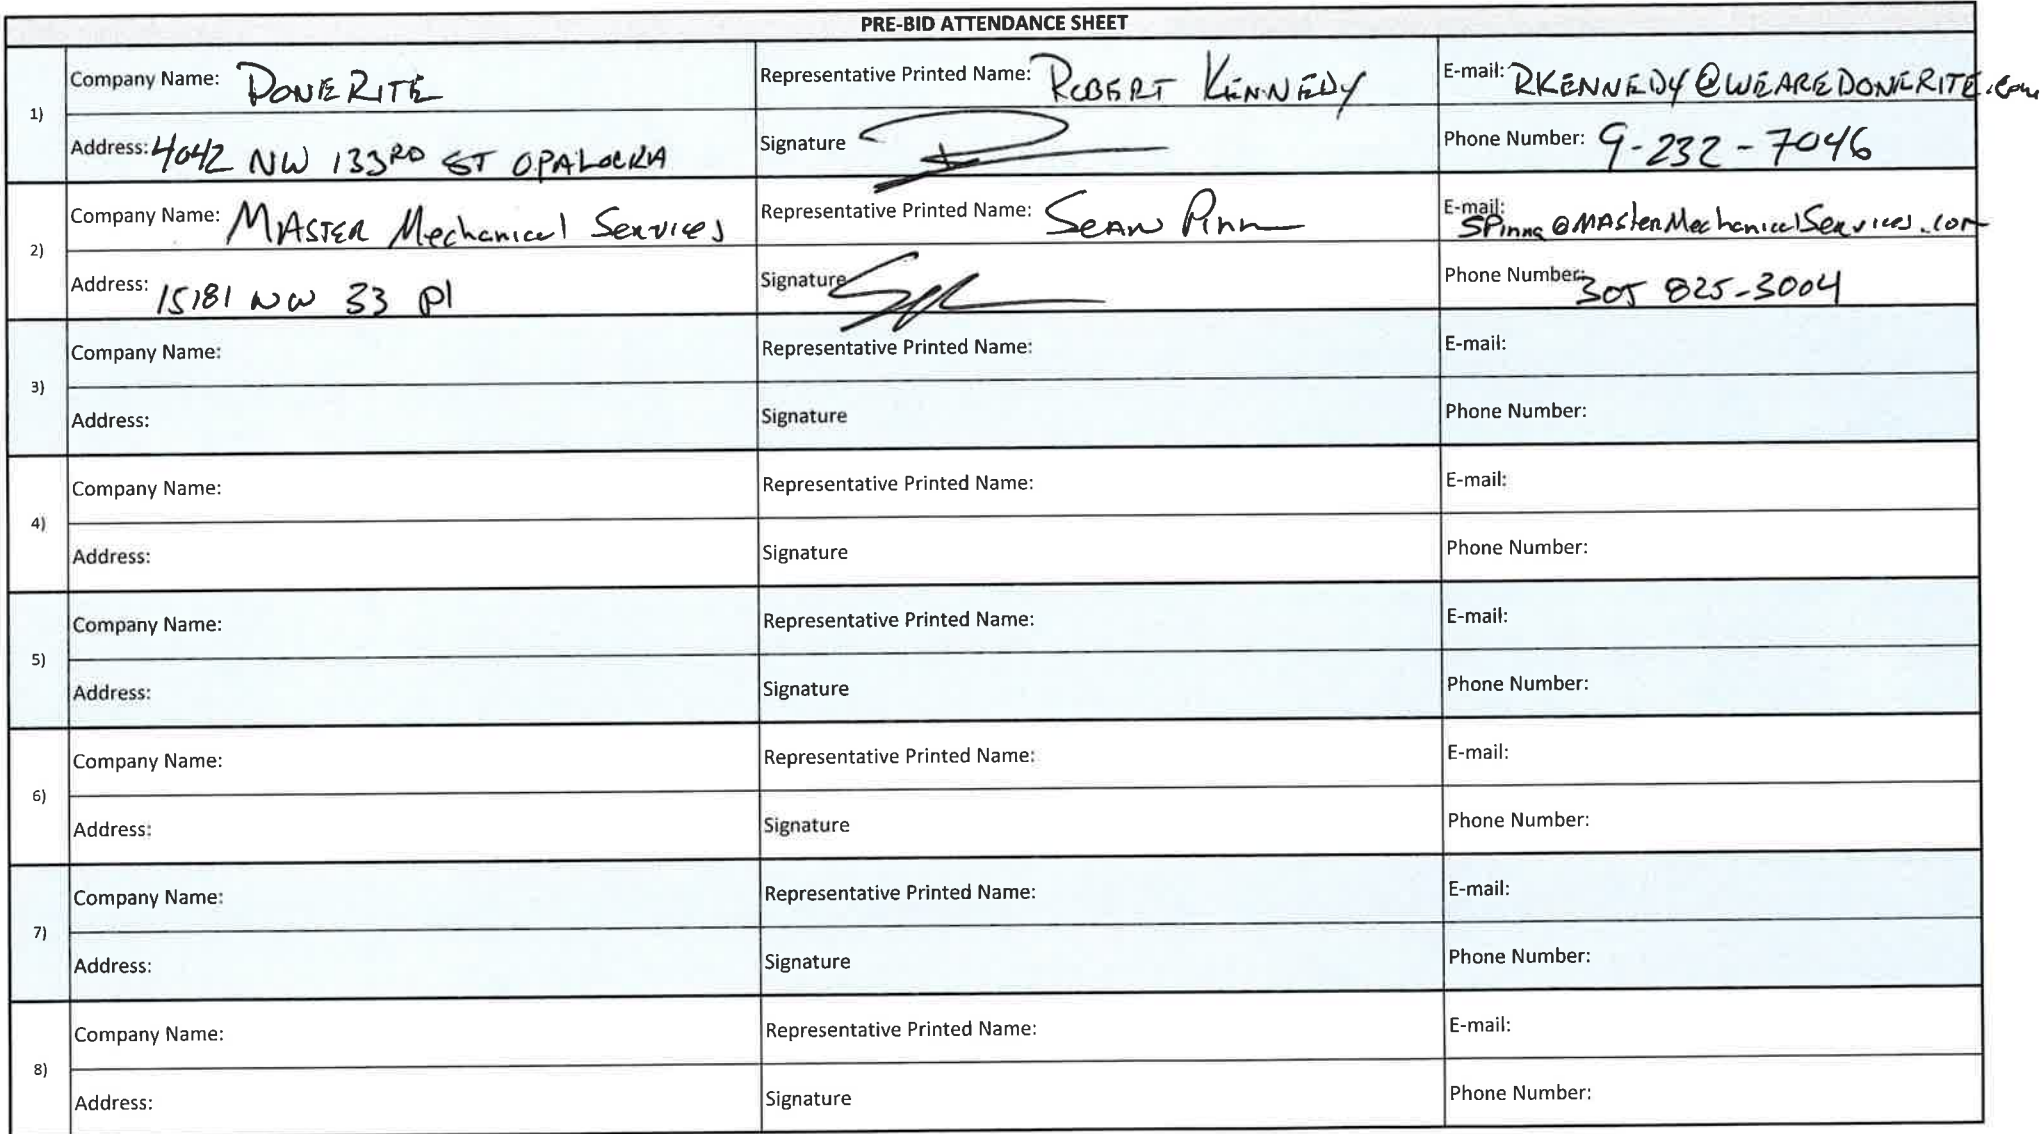 PRE-BID ATTENDANCE SHEET
1)
Company Name: DONERITE
Representative Printed Name: ROBERT KENNEDY
E-mail: RKENNEDY@WEAREDONERITE.com
Address: 4042 NW 133RD ST OPALOCKA
Signature
Phone Number: 9-232-7046
2)
Company Name: MASTER Mechanical Services
Representative Printed Name: SEAN Pinn
E-mail: SPinna@MAsterMechanicalServices.com
Address: 15181 NW 33 Pl
Signature
Phone Number: 305 825-3004
3)
Company Name:
Representative Printed Name:
E-mail:
Address:
Signature
Phone Number:
4)
Company Name:
Representative Printed Name:
E-mail:
Address:
Signature
Phone Number:
5)
Company Name:
Representative Printed Name:
E-mail:
Address:
Signature
Phone Number:
6)
Company Name:
Representative Printed Name:
E-mail:
Address:
Signature
Phone Number:
7)
Company Name:
Representative Printed Name:
E-mail:
Address:
Signature
Phone Number:
8)
Company Name:
Representative Printed Name:
E-mail:
Address:
Signature
Phone Number: